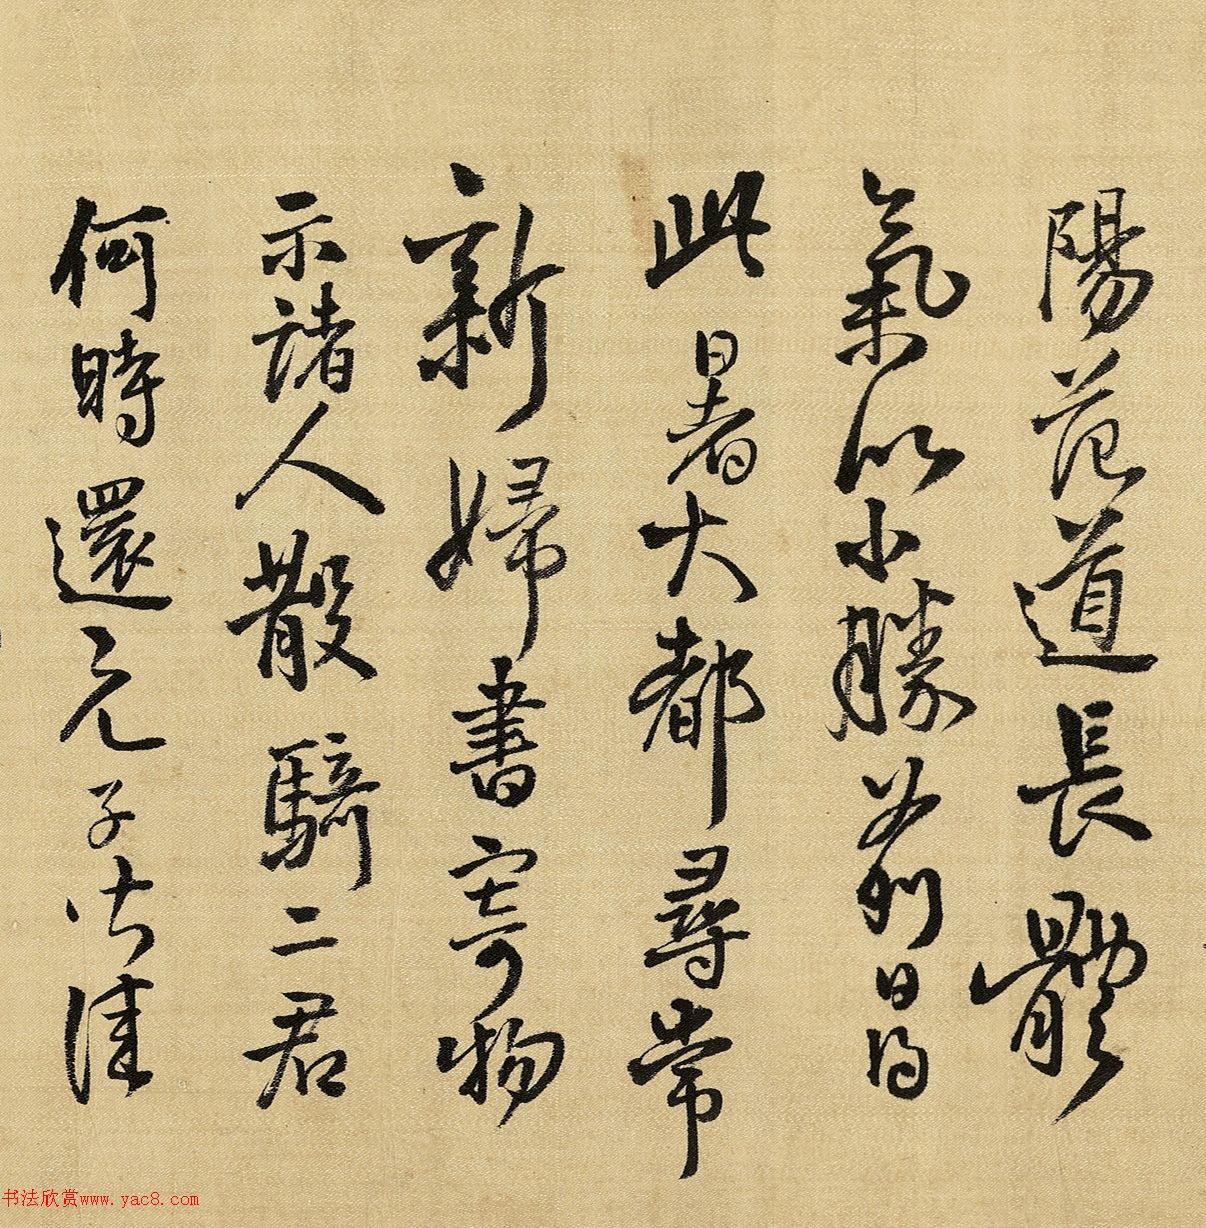 陽范道長體
氣以小勝前日得
此暑大都尋常
新婦書寄物
示諸人散騎二君
何時還元子皆佳
书法欣赏www.yac8.com